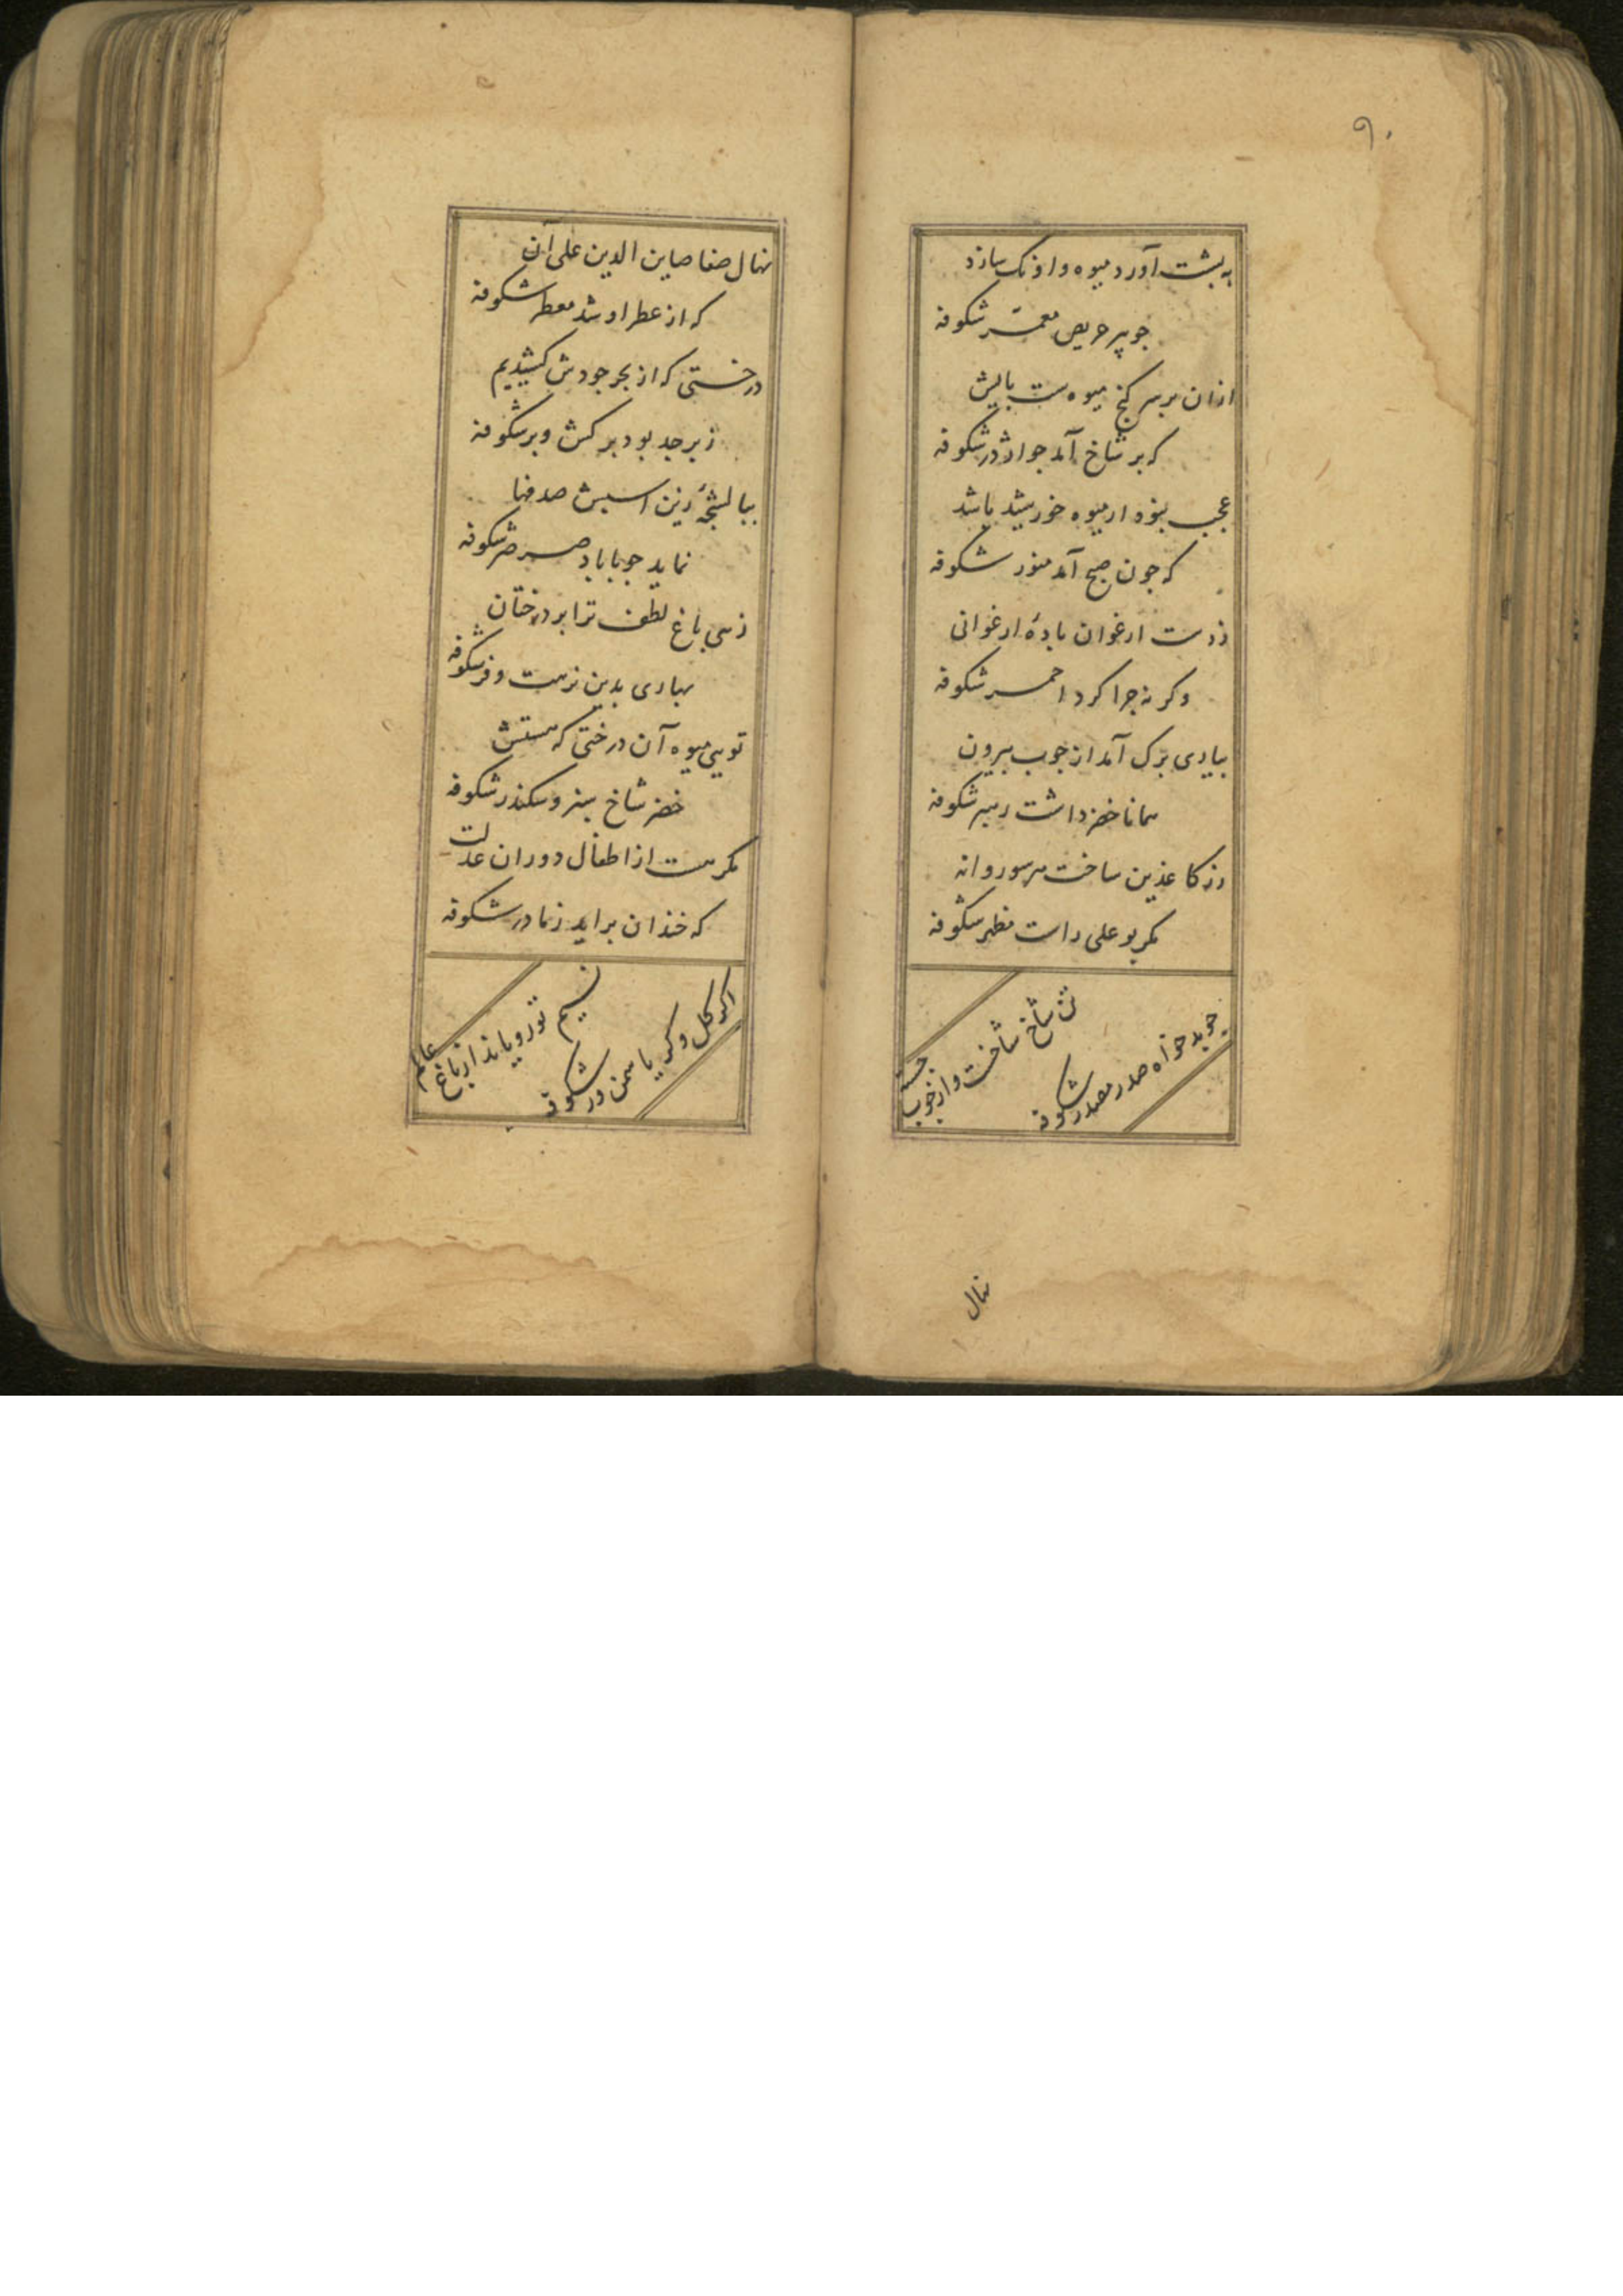 ۹۰
به پشت آورد میوه وا و نک سازد
جو پیر حریص معمّر شکوفه
ازان بر سر کنج میوه ست بالیش
که بر شاخ آمد جو اژدر شکوفه
عجب نبود ار میوه خورشید باشد
که جون صبح آمد منور شکوفه
زدست ارغوان بادهٔ ارغوانی
وکر نه جرا کرد احمر شکوفه
بیاری برک آمد از جوب بیرون
همانا خضر داشت رهبر شکوفه
رز کاغذین ساخت هر سو روانه
مکر بوعلی راست مظهر شکوفه
تن شاخ شاخست واز خوب جسته
جو بدخواه صدر مصدر شکوفه
نهال
نهال صفا صاین الدین علی آن
که از عطر او شد معطر شکوفه
درختی که از بحر جودش کشیدیم
زبرجد بود برکش وبر شکوفه
صدفها
نماید جو با باد صرصر شکوفه
زهی باغ لطف ترا بر درختان
بهاری بدین نزهت وفر شکوفه
تویی میوه آن درختی که هستش
خضر شاخ سبز وسکندر شکوفه
مکر هست از اطفال دوران عدلت
که خندان براید زمادر شکوفه
نسیم تو رویاند از باغ عالم
اکر کل وکر یاسمن ور شکوفه